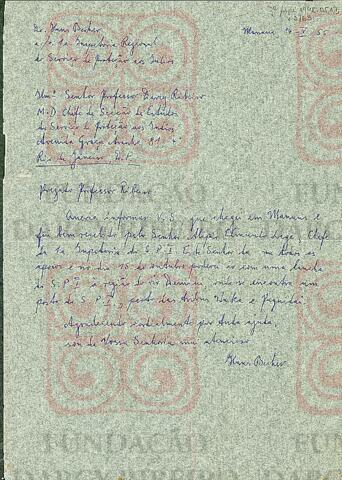 Dr. Hans Becher
a/c 1a Inspetoria Regional
do Serviço de Proteção aos Índios
Manaus 14-X-55
Ilmo Senhor Professor Darcy Ribeiro
M.D. Chefe da Secção de Estudos
do Serviço de Proteção aos Índios
Avenida Graça Aranha 81
Rio de Janeiro D.F.
Prezado Professor Ribeiro
Queria informar V.S. que cheguei em Manaus e
fui bem recebido pelo Senhor Chefe
da 1a Inspetoria do S.P.I. Este Senhor
apoio e no dia 18 de outubro poderei ir com uma lancha
do S.P.I. à região do rio Demini, onde se encontra um
posto do S.P.I., perto das
Agradecendo cordialmente por Sua ajuda,
sou de Vossa Senhoria mui atencioso
Hans Becher
FUNDAÇÃO
DARCY RIBEIRO
FUNDAÇÃO
DARCY RIBEIRO